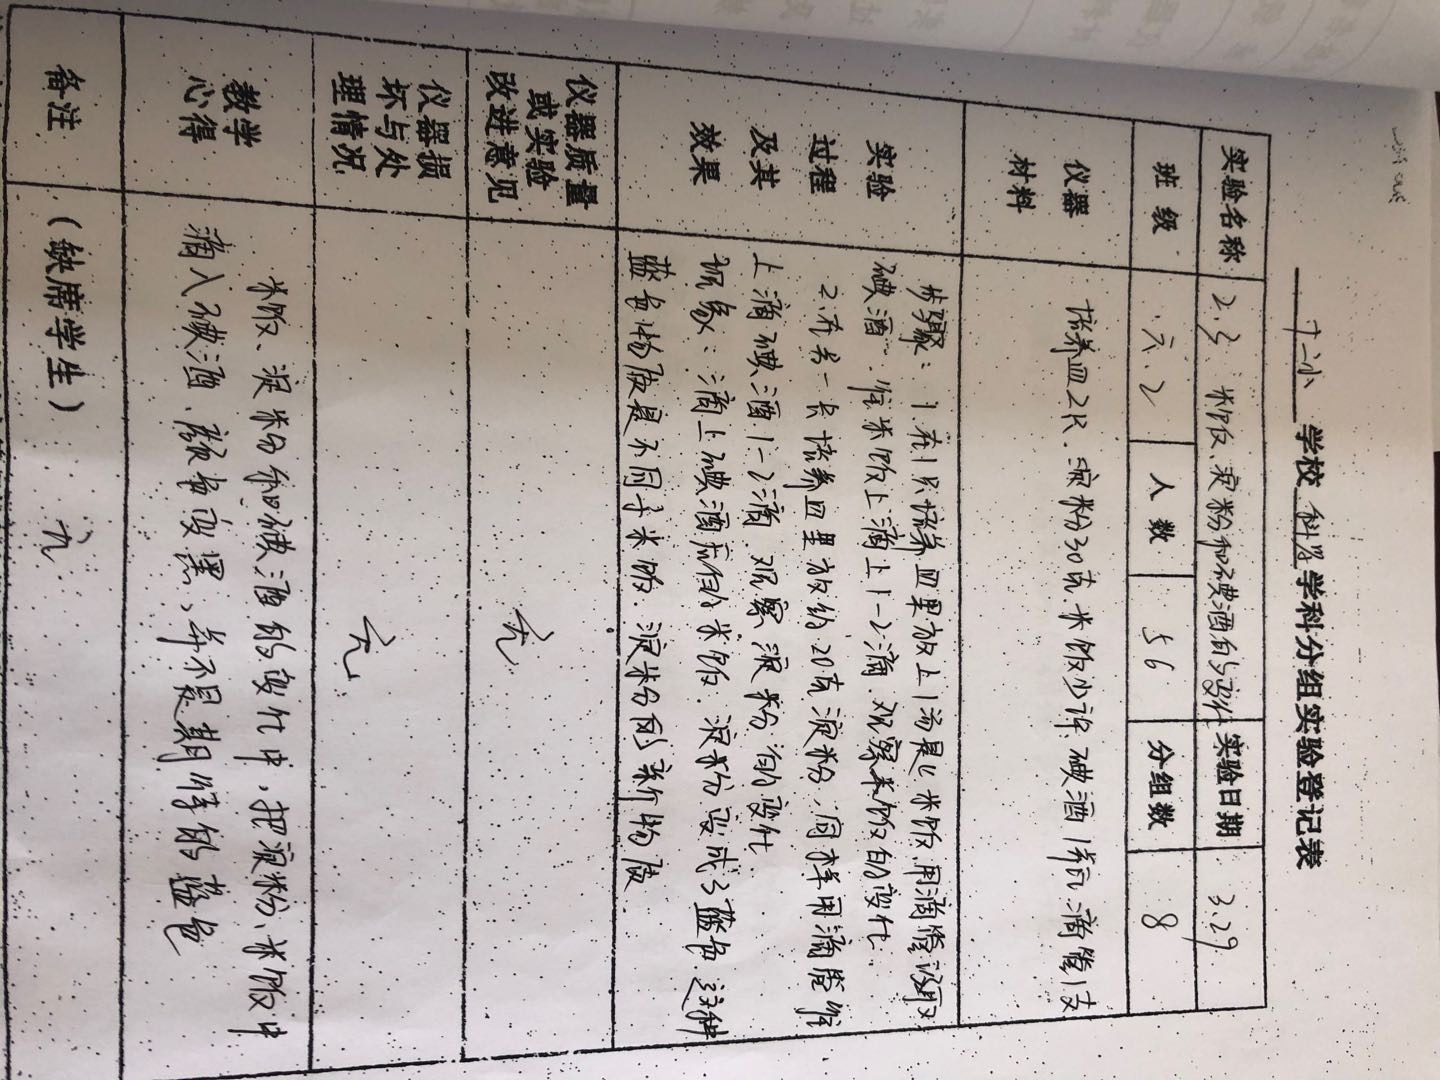 十二小 学校 科学 学科分组实验登记表
实验名称 2.3 米饭、淀粉和碘酒的变化 实验日期 3.29
班级 六.2 人数 56 分组数 8
仪器
材料
培养皿2只.淀粉30克.米饭少许.碘酒1瓶.滴管1支
实验
过程
及其
效果
步骤：1.在1只培养皿里放上1汤匙米饭.用滴管
碘酒.在米饭上滴上1-2滴.观察米饭的变化.
2.在另一只培养皿里放约20克淀粉,同样用滴管在
上滴碘酒1-2滴.观察淀粉的变化
现象：滴上碘酒后的米饭.淀粉变成了蓝色.这种
蓝色物质是不同于米饭.淀粉的新物质
仪器质量
或实验
改进意见
无.
仪器损
坏与处
理情况
无.
教学
心得
米饭、淀粉和碘酒的变化中,把淀粉、米饭中
滴入碘酒,颜色变黑,并不是期待的蓝色
备注
（缺席学生） 无